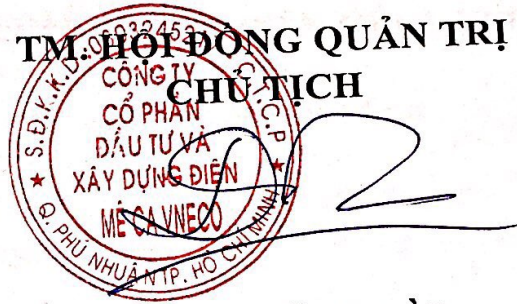 TM. HỘI ĐỒNG QUẢN TRỊ
CHỦ TỊCH
CÔNG TY
CỔ PHẦN
ĐẦU TƯ VÀ
XÂY DỰNG ĐIỆN
MÊ CA VNECO
Q. PHÚ NHUẬN TP. HỒ CHÍ MINH